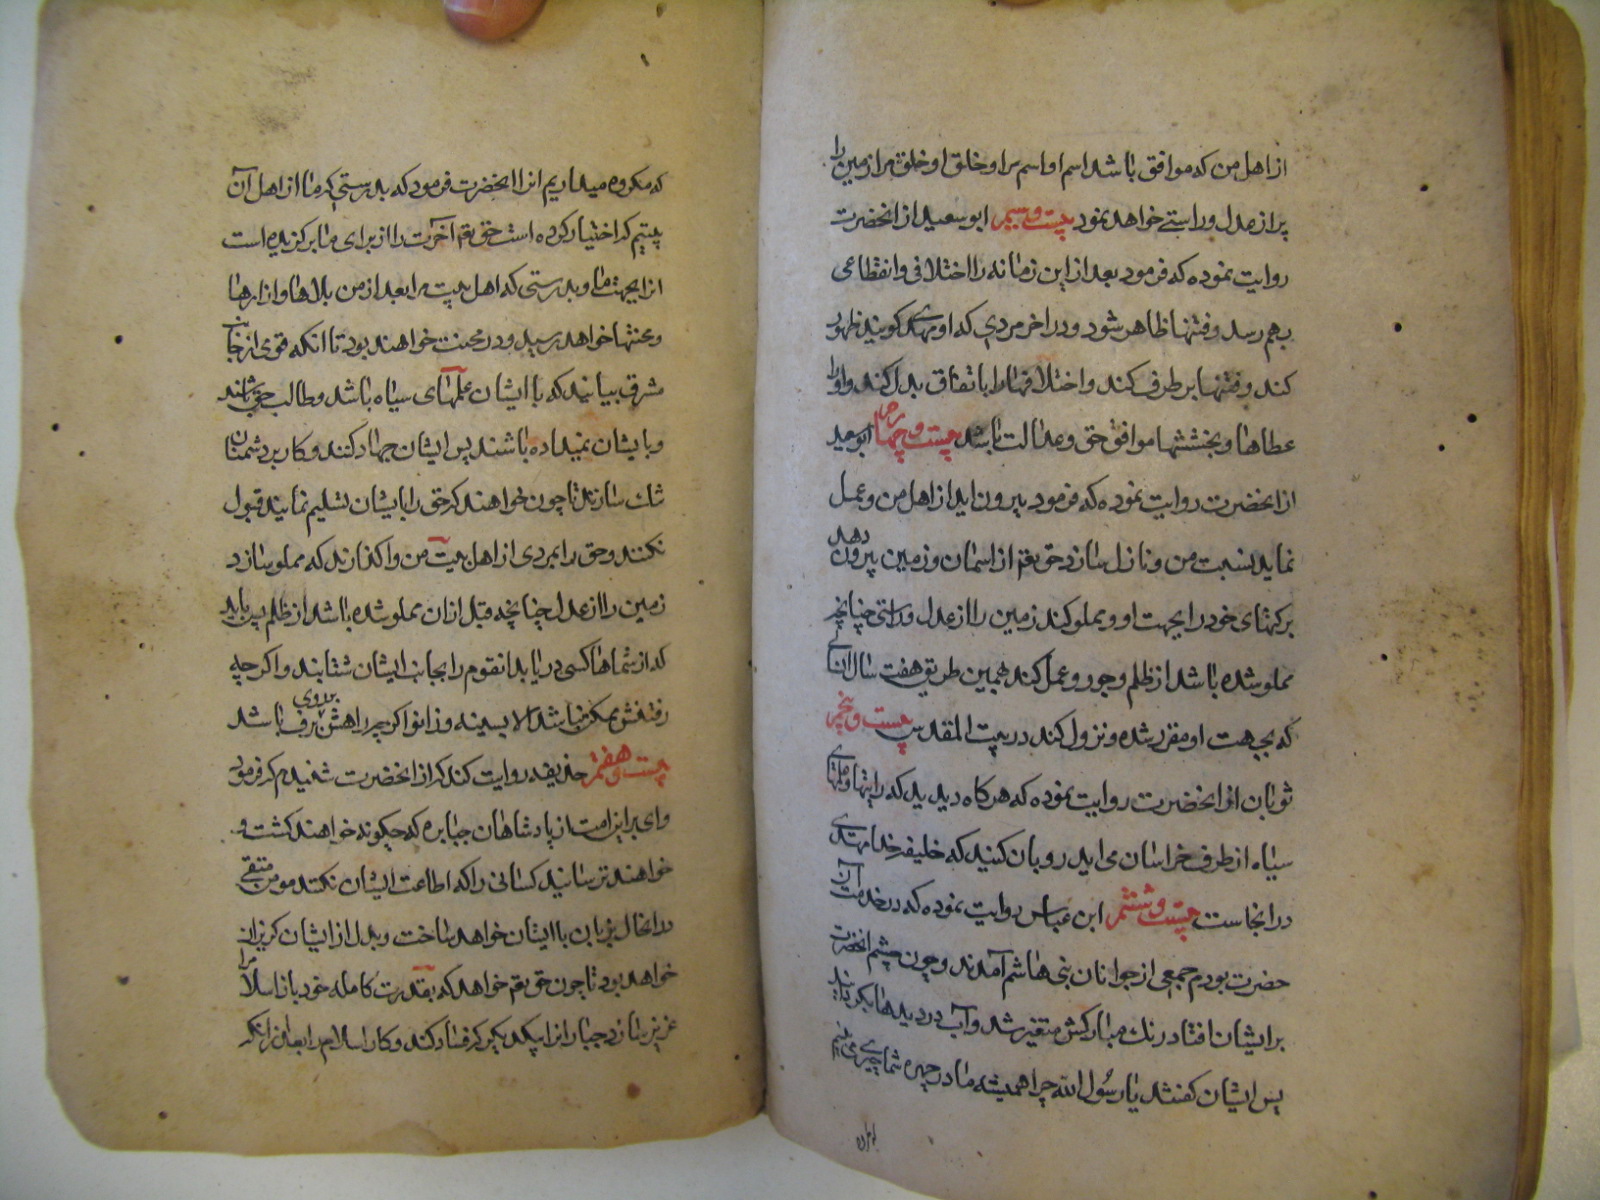 از اهل من که موافق باشد اسم او اسم مرا و خلق او خلق مرا زمین را
پر از عدل و راستی خواهد نمود بیست و سیم ابو سعید از انحضرت
روایت نموده که فرمود بعد از این زمانه را اختلافی و انقطاعی
بهم رسد و فتنها ظاهر شود و در اخر مردی که او مهدی کویند ظهور
کند و فتنها برطرف کند و اختلافها را باتفاق بدل کند و او را
عطاها و بخششها موافق حق و عدالت باشد بیست و چهارم ابو سعید
از انحضرت روایت نموده که فرمود بیرون اید از اهل من و عمل
نماید بسنت من و نازل سازد حق تعم از اسمان و زمین بیرون دهد
برکتهای خود را بجهت او و مملو کند زمین را از عدل و راستی چنانچه
مملو شده باشد از ظلم و جور و عمل کند همین طریق هفت سال
که بجهت او مقرر شده و نزول کند در بیت المقدس بیست و پنجم
ثوبان از انحضرت روایت نموده که هرکاه دیدید که رایتها و علمهای
سیاه از طرف خراسان می اید رو بان کنید که خلیفه خدا مهدی
در انجاست بیست و ششم ابن عباس روایت نموده که در خدمت آن
حضرت بودم جمعی از جوانان بنی هاشم آمدند و چون چشم انحضرت
بر ایشان افتاد رنك مبارکش متغیر شد و آب در دیدها بکردانید
پس ایشان کفتند یا رسول الله چرا همیشه ما در چهره شما چیزی می بینیم
که مکروه میداریم انرا انحضرت فرمود که بدرستی که ما از اهل آن
بیتیم که اختیار کرده است حق تعم آخرت را از برای ما برکزیده است
از این جهت ما و بدرستی که اهل بیت مرا بعد از من بلاها و ازارها
و محنتها خواهد رسید و در محنت خواهند بود تا انکه قومی از جانب
مشرق بیایند که با ایشان علمهای سیاه باشد و طالب حق باشند
و بایشان نمیداده باشند پس ایشان جهاد کنند و کار بر دشمنان
تنك سازند تا چون خواهند که حق را بایشان تسلیم نمایند قبول
نکنند و حق را بمردی از اهل بیت من واکذارند که مملو سازد
زمین را از عدل چنانچه قبل از ان مملو شده باشد از ظلم پس باید
که از شماها کسی دریابد انقوم را بجانب ایشان شتابند و اکر چه
رفتنش ممکن نباشد الا بسینه و زانو اکر چه راهش بر روی برف باشد
بیست و هفتم حذیفه روایت کند که از انحضرت شنیدم که فرمود
وای بر این امت از پادشاهان جبابره که چکونه خواهند کشت و
خواهند ترسانید کسانی را که اطاعت ایشان نکنند مومن متقی
در انحال بزبان با ایشان خواهد ساخت و بدل از ایشان کریزان
خواهد بود تا چون حق تعم خواهد که بقدرت کامله خود باز اسلام را
عزیز سازد جباران را